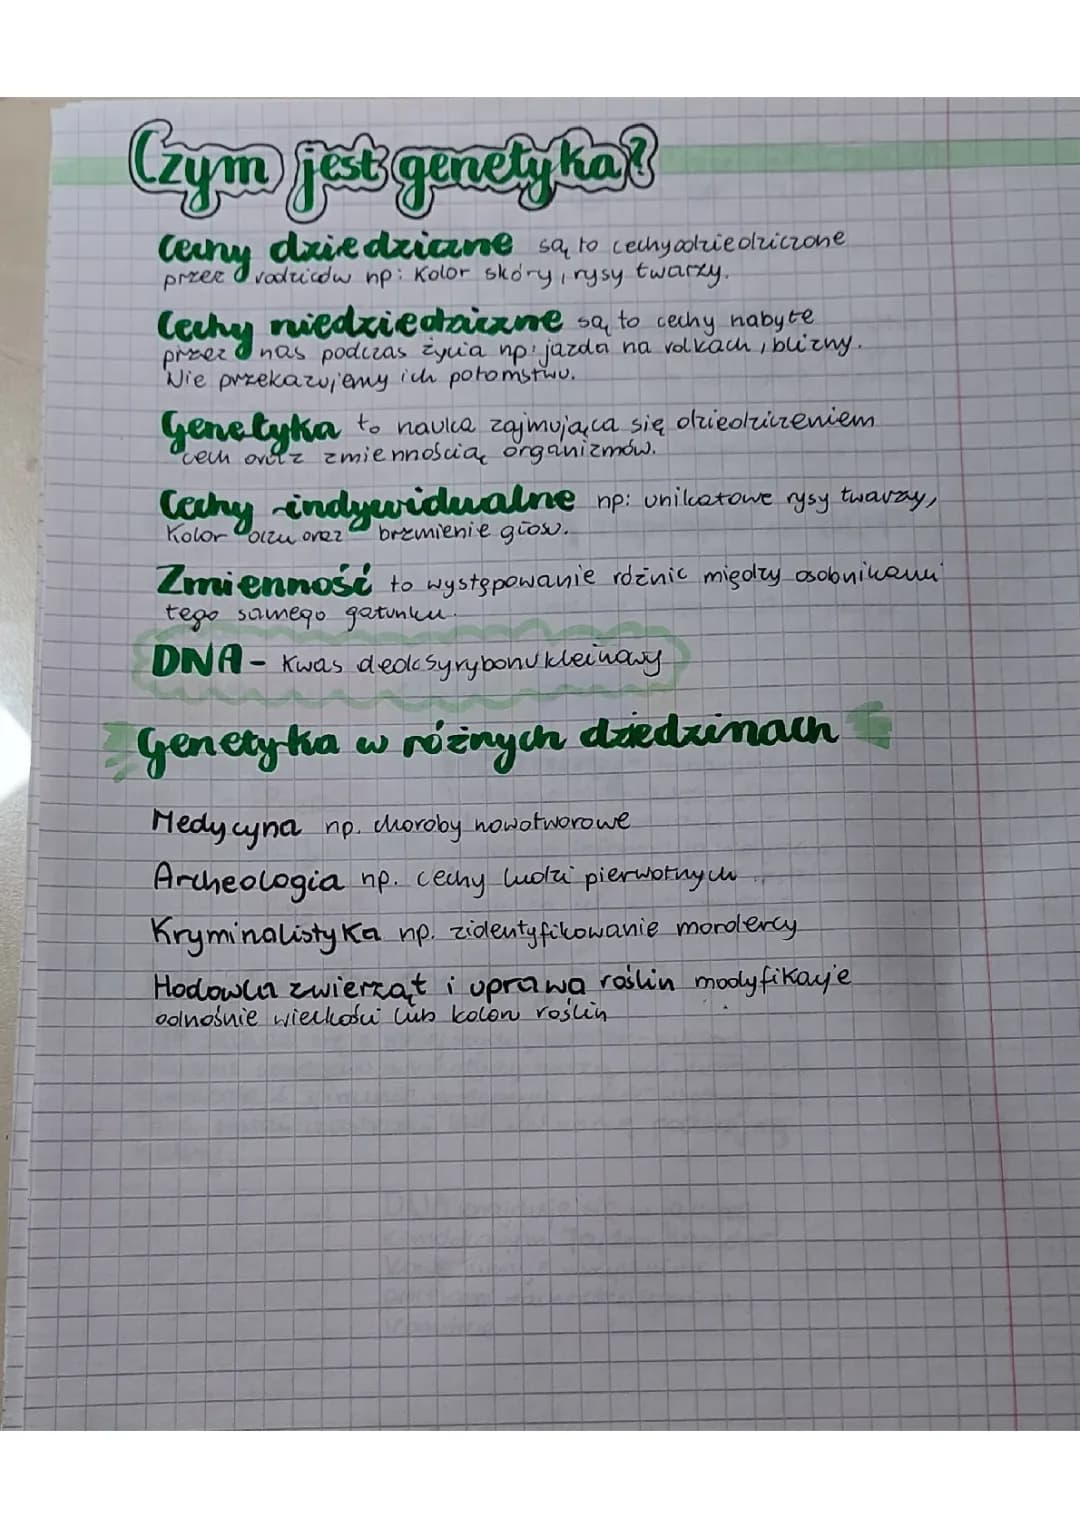 Czym jest genetyka?
Cechy dziedziczne są to cechy odziedziczone
przez rodziców np: Kolor skóry, rysy twarzy.
Cechy niedziedziczne są to cechy nabyte
przez nas podczas życia np: jazda na rolkach, blizny.
Nie przekazujemy ich potomstwu.
Genetyka to nauka zajmująca się dziedziczeniem
cech oraz zmiennością organizmów.
Cechy indywidualne np: unikatowe rysy twarzy,
Kolor oczu oraz brzmienie głosu.
Zmienność to występowanie różnic między osobnikami
tego samego gatunku.
DNA - Kwas deoksyrybonukleinowy
Genetyka w różnych dziedzinach
Medycyna np. choroby nowotworowe
Archeologia np. cechy ludzi pierwotnych
Kryminalistyka np. zidentyfikowanie mordercy
Hodowla zwierząt i uprawa roślin modyfikacje
odnośnie wielkości lub koloru roślin